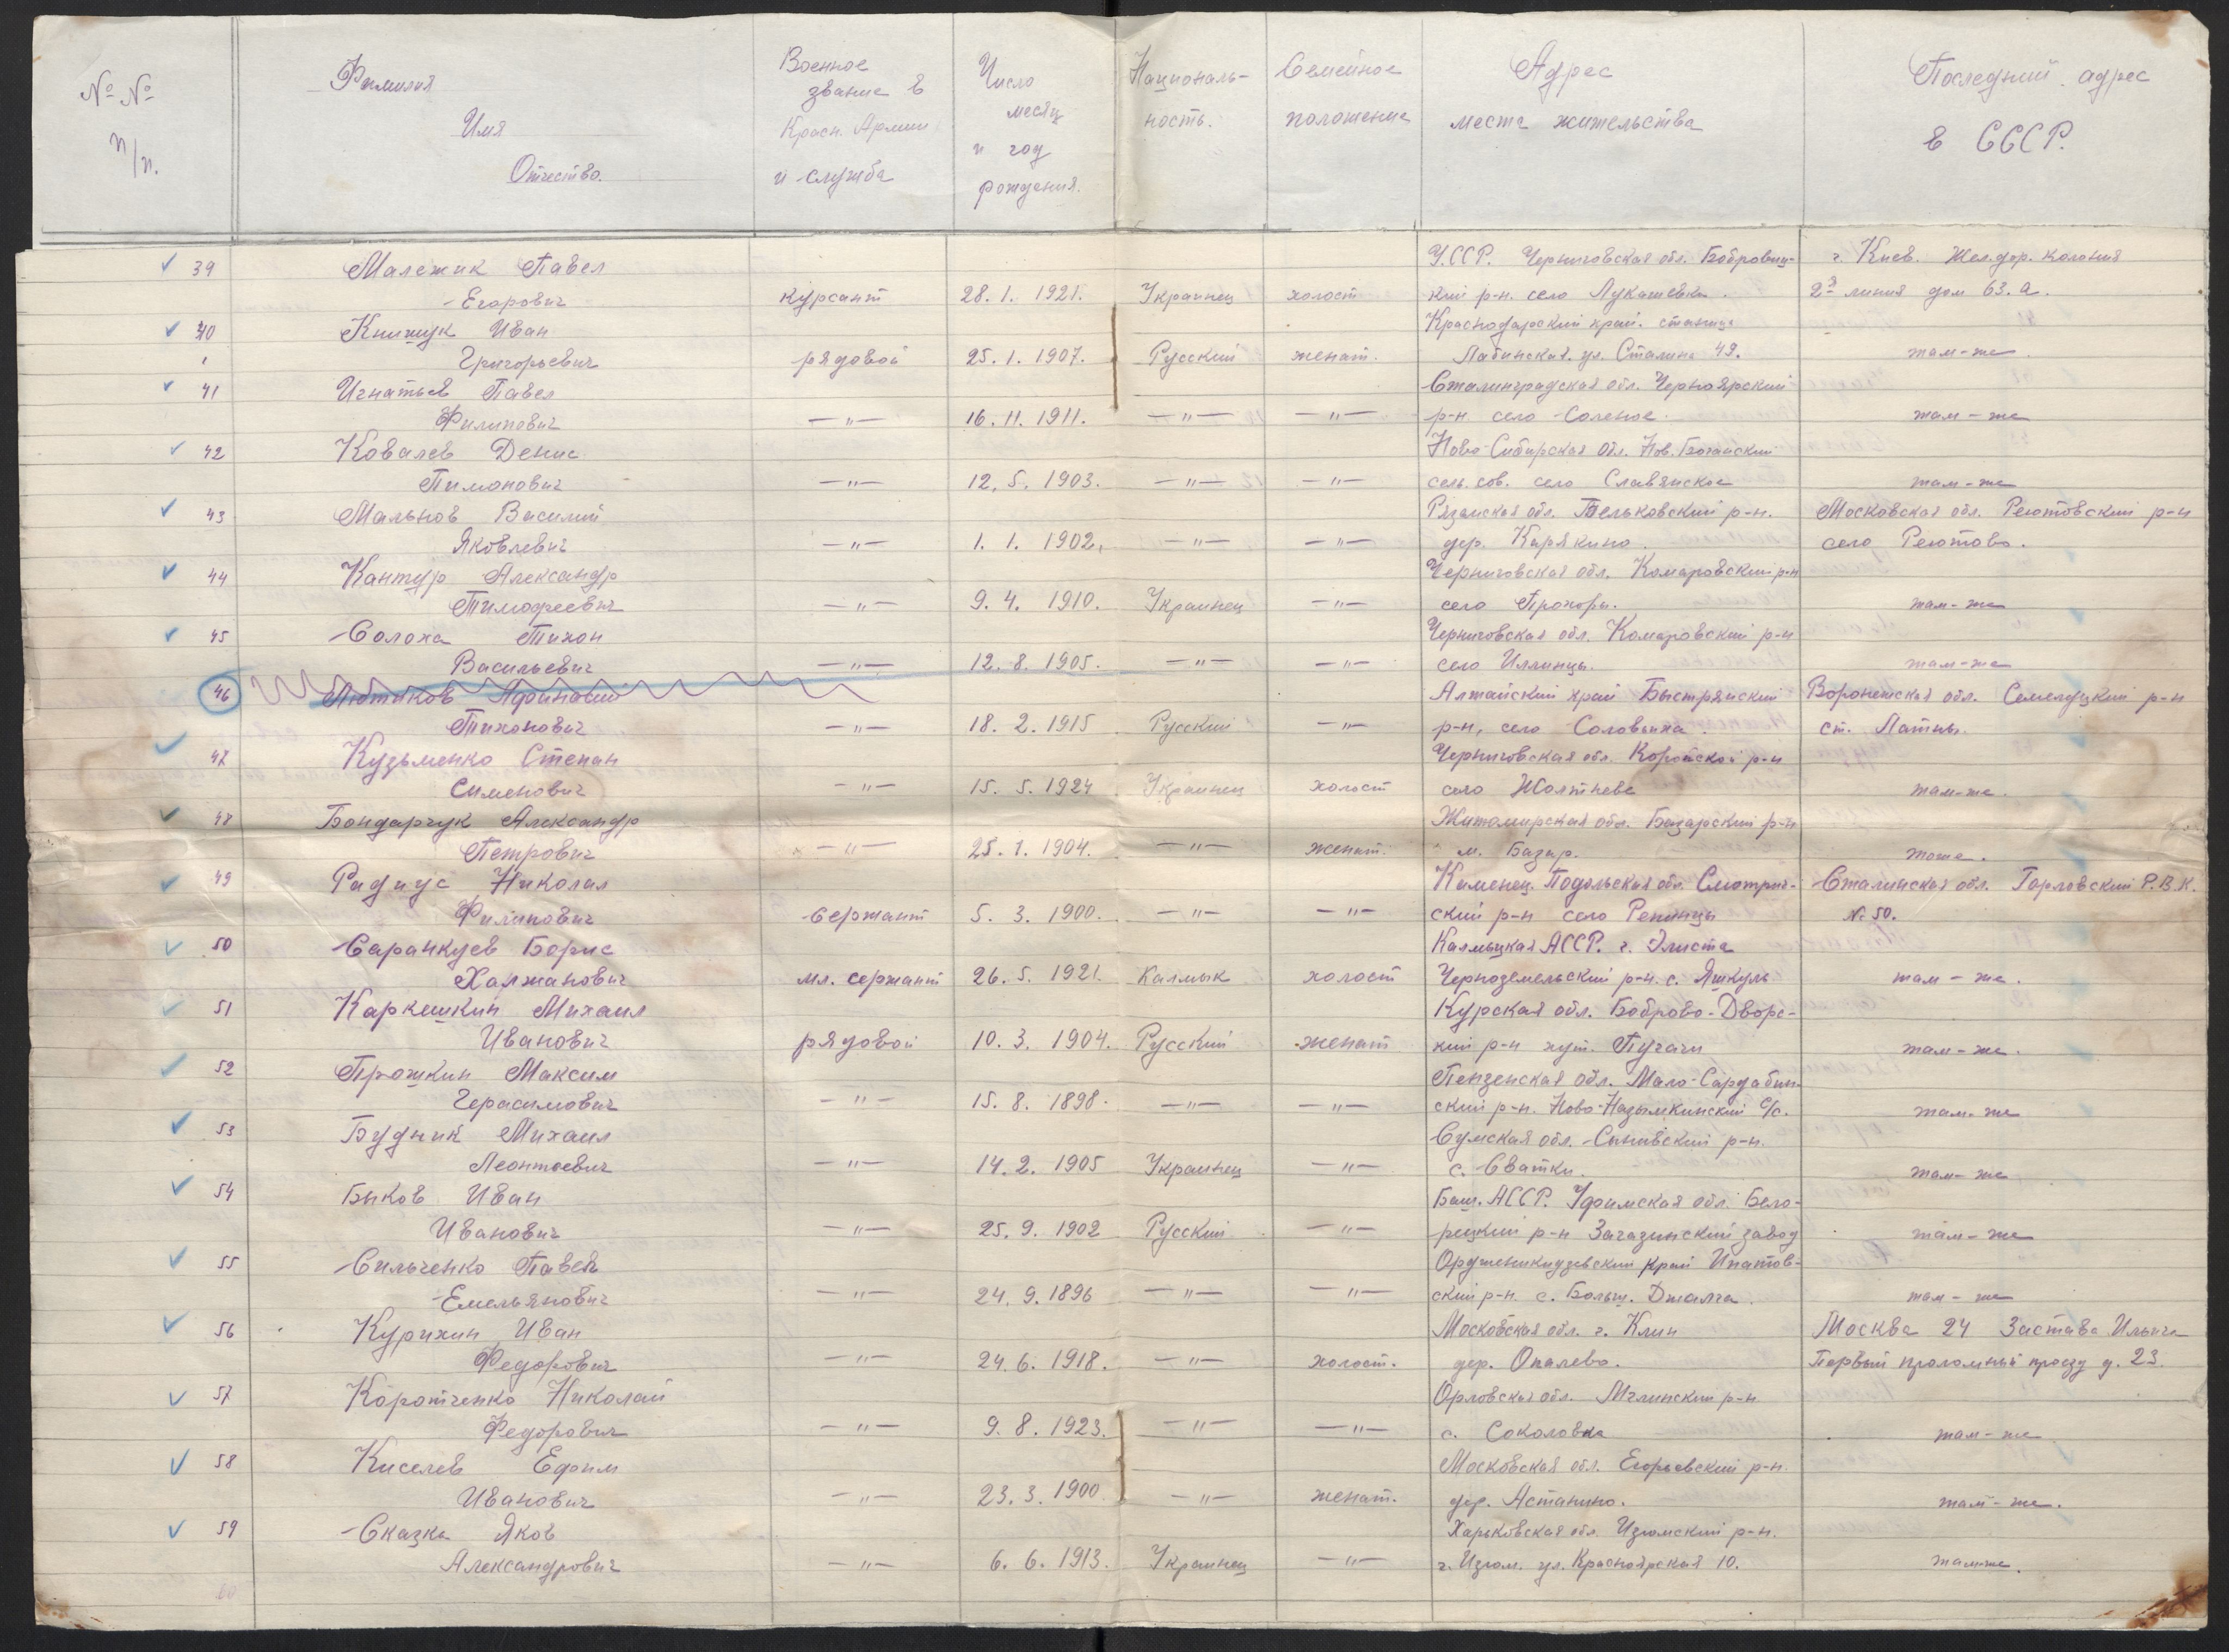 № № п/п.
Фамилия Имя Отчество.
Военное звание в Красн. Армии и служба
Число месяц и год рождения.
Националь-ность.
Семейное положение
Адрес места жительства
Последний адрес в СССР.
39 Малежик Павел У.ССР. Черниговская обл. Бобровиц- г. Киев. Жел.дор. колония
Егорович курсант 28. 1. 1921. Украинец холост кий р-н. село Лукашевка. 2я линия дом 63.а.
40 Книжук Иван Краснодарский край. станица
Григорьевич рядовой 25. 1. 1907. Русский женат. Лабинская. ул. Сталина 49. там-же.
41 Игнатьев Павел Сталинградская обл. Черноярский
Филипович —"— 16. 11. 1911. —"— —"— р-н село Соленое. там-же
42 Ковалев Денис Ново-Сибирская обл. Нов.
Пимонович —"— 12. 5. 1903. —"— —"— сель. сов. село Славянское там-же
43 Мальнов Василий Рязанская обл. Бельковский р-н. Московская обл. Реютовский р-н
Яковлевич —"— 1. 1. 1902. —"— —"— дер. Карякино. село Реютово.
44 Кантур Александр Черниговская обл. Комаровский р-н
Тимофеевич —"— 9. 4. 1910. Украинец —"— село Прохоры. там-же
45 Солоха Тихон Черниговская обл. Комаровский р-н
Васильевич —"— 12. 8. 1905. —"— —"— село Иллинцы. там-же
46 Лютиков Афонасий Алтайский край Быстрянский Воронежская обл. Семелуцкий р-н
Тихонович —"— 18. 2. 1915 Русский —"— р-н, село Соловьиха. ст. Латны.
47 Кузьменко Степан Черниговская обл. Коропской р-н
Сименович —"— 15. 5. 1924 Украинец холост село Жолтнева там-же.
48 Бондарчук Александр Житомирская обл. Базарский р-н
Петрович —"— 25. 1. 1904. —"— женат. м. Базар. тоже.
49 Радиус Николай Каменец. Подольская обл. Смотрич- Сталинская обл. Горловский Р.В.К.
Филипович Сержант 5. 3. 1900. —"— —"— ский р-н село Репинцы № 50.
50 Саранкуев Борис Калмыцкая АССР. г. Элиста
Халжанович мл. сержант 26. 5. 1921. Калмык холост Черноземельский р-н. с. Яшкуль там-же.
51 Каркешкин Михаил Курская обл. Боброво-Дворс-
Иванович рядовой 10. 3. 1904. Русский женат кий р-н хут. Пугачи там-же.
52 Прошкин Максим Пензенская обл. Мало-Сардабин-
Герасимович —"— 15. 8. 1898. —"— —"— ский р-н. Ново-Назымкинский с/с. там-же
53 Будник Михаил Сумская обл. Синивский р-н.
Леонтоевич —"— 14. 2. 1905 Украинец —"— с. Сватки. там-же
54 Быков Иван Баш. АССР. Уфимская обл. Бело-
Иванович —"— 25. 9. 1902 Русский —"— рецкий р-н Загазинский завод там-же
55 Сильченко Павел Ордженикидзевский край Ипатов-
Емельянович —"— 24. 9. 1896 —"— —"— ский р-н. с. Больш. Джалга. там-же
56 Курихин Иван Московская обл. г. Клин Москва 24 Застава Ильича
Федорович —"— 24. 6. 1918. —"— холост. дер. Опалево. Первый проломный проезд д. 23.
57 Коротченко Николай Орловская обл. Мглинский р-н
Федорович —"— 9. 8. 1923. —"— —"— с. Соколовка там-же
58 Киселев Ефим Московская обл. Егорьевский р-н.
Иванович —"— 23. 3. 1900. —"— женат. дер. Астанино. там-же.
59 Сказка Яков Харьковская обл. Изюмский р-н.
Александрович —"— 6. 6. 1913. Украинец —"— г. Изюм. ул. Красноярская 10. там-же.
60